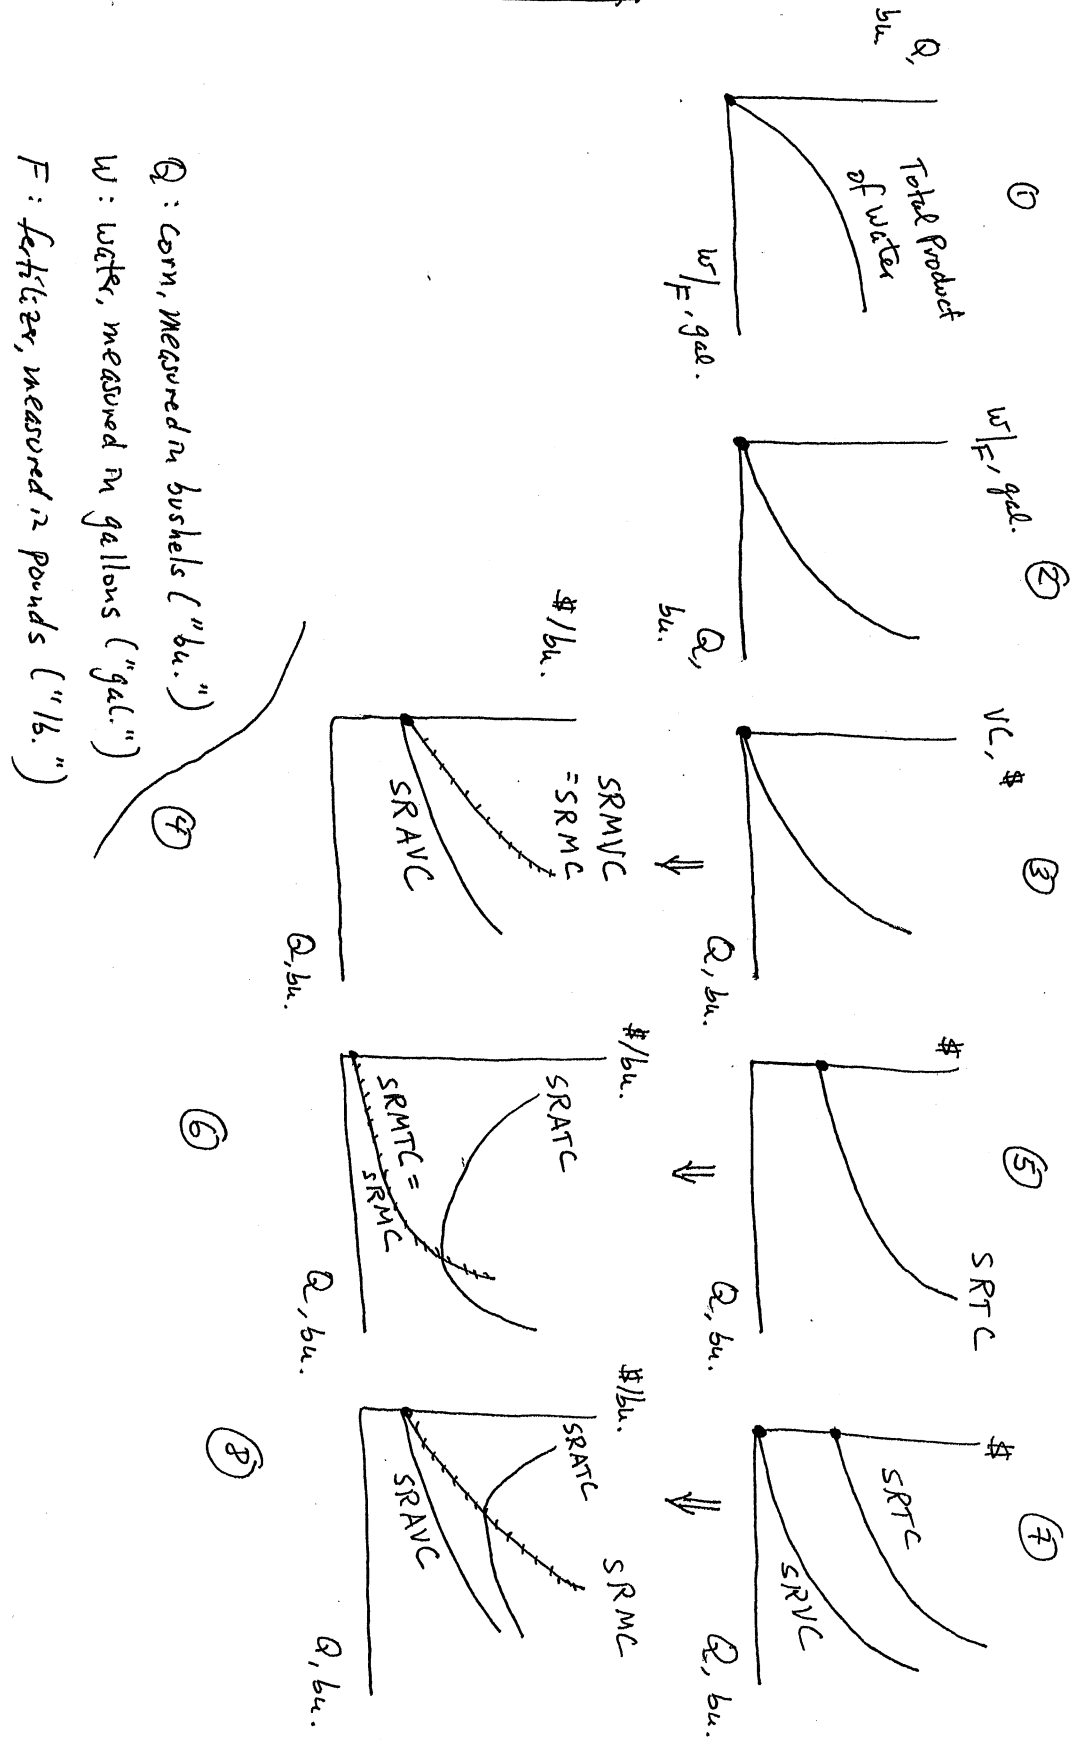 ①
Q,
bu.
Total Product
of Water
W/F, gal.
②
W/F, gal.
Q,
bu.
③
VC, $
Q, bu.
⇓
④
$/bu.
SRMVC
=SRMC
SRAVC
Q, bu.
⑤
$
SRTC
Q, bu.
⇓
⑥
$/bu.
SRATC
SRMTC =
SRMC
Q, bu.
⑦
$
SRTC
SRVC
Q, bu.
⇓
⑧
$/bu.
SRATC
SRMC
SRAVC
Q, bu.
Q : corn, measured in bushels ("bu.")
W : water, measured in gallons ("gal.")
F : fertilizer, measured in pounds ("lb.")